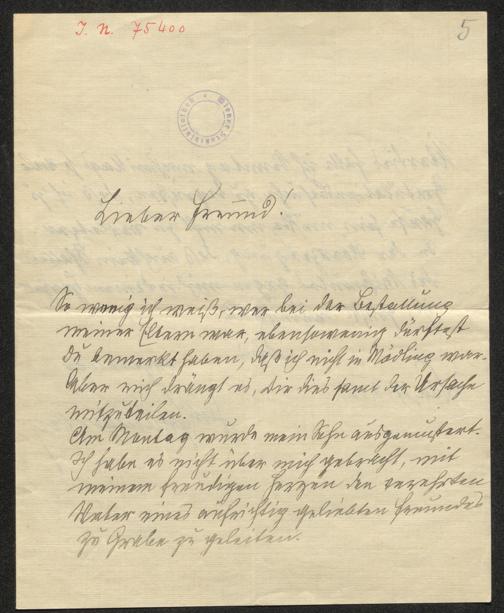 I. N. 75400
5
Wiener Stadtbibliothek
Lieber Freund!
So wenig ich weiß, wer bei der Bestallung
meiner Eltern war, ebensowenig dürftest
du bemerkt haben, daß ich nicht in Mödling war.
Aber mich drängt es, dir dies samt der Ursache
mitzuteilen.
Am Montag wurde mein Sohn ausgemustert.
Ich habe es nicht über mich gebracht, mit
meinem freudigen Herzen den verehrten
Vater eines aufrichtig geliebten Freundes
zu Grabe zu geleiten.